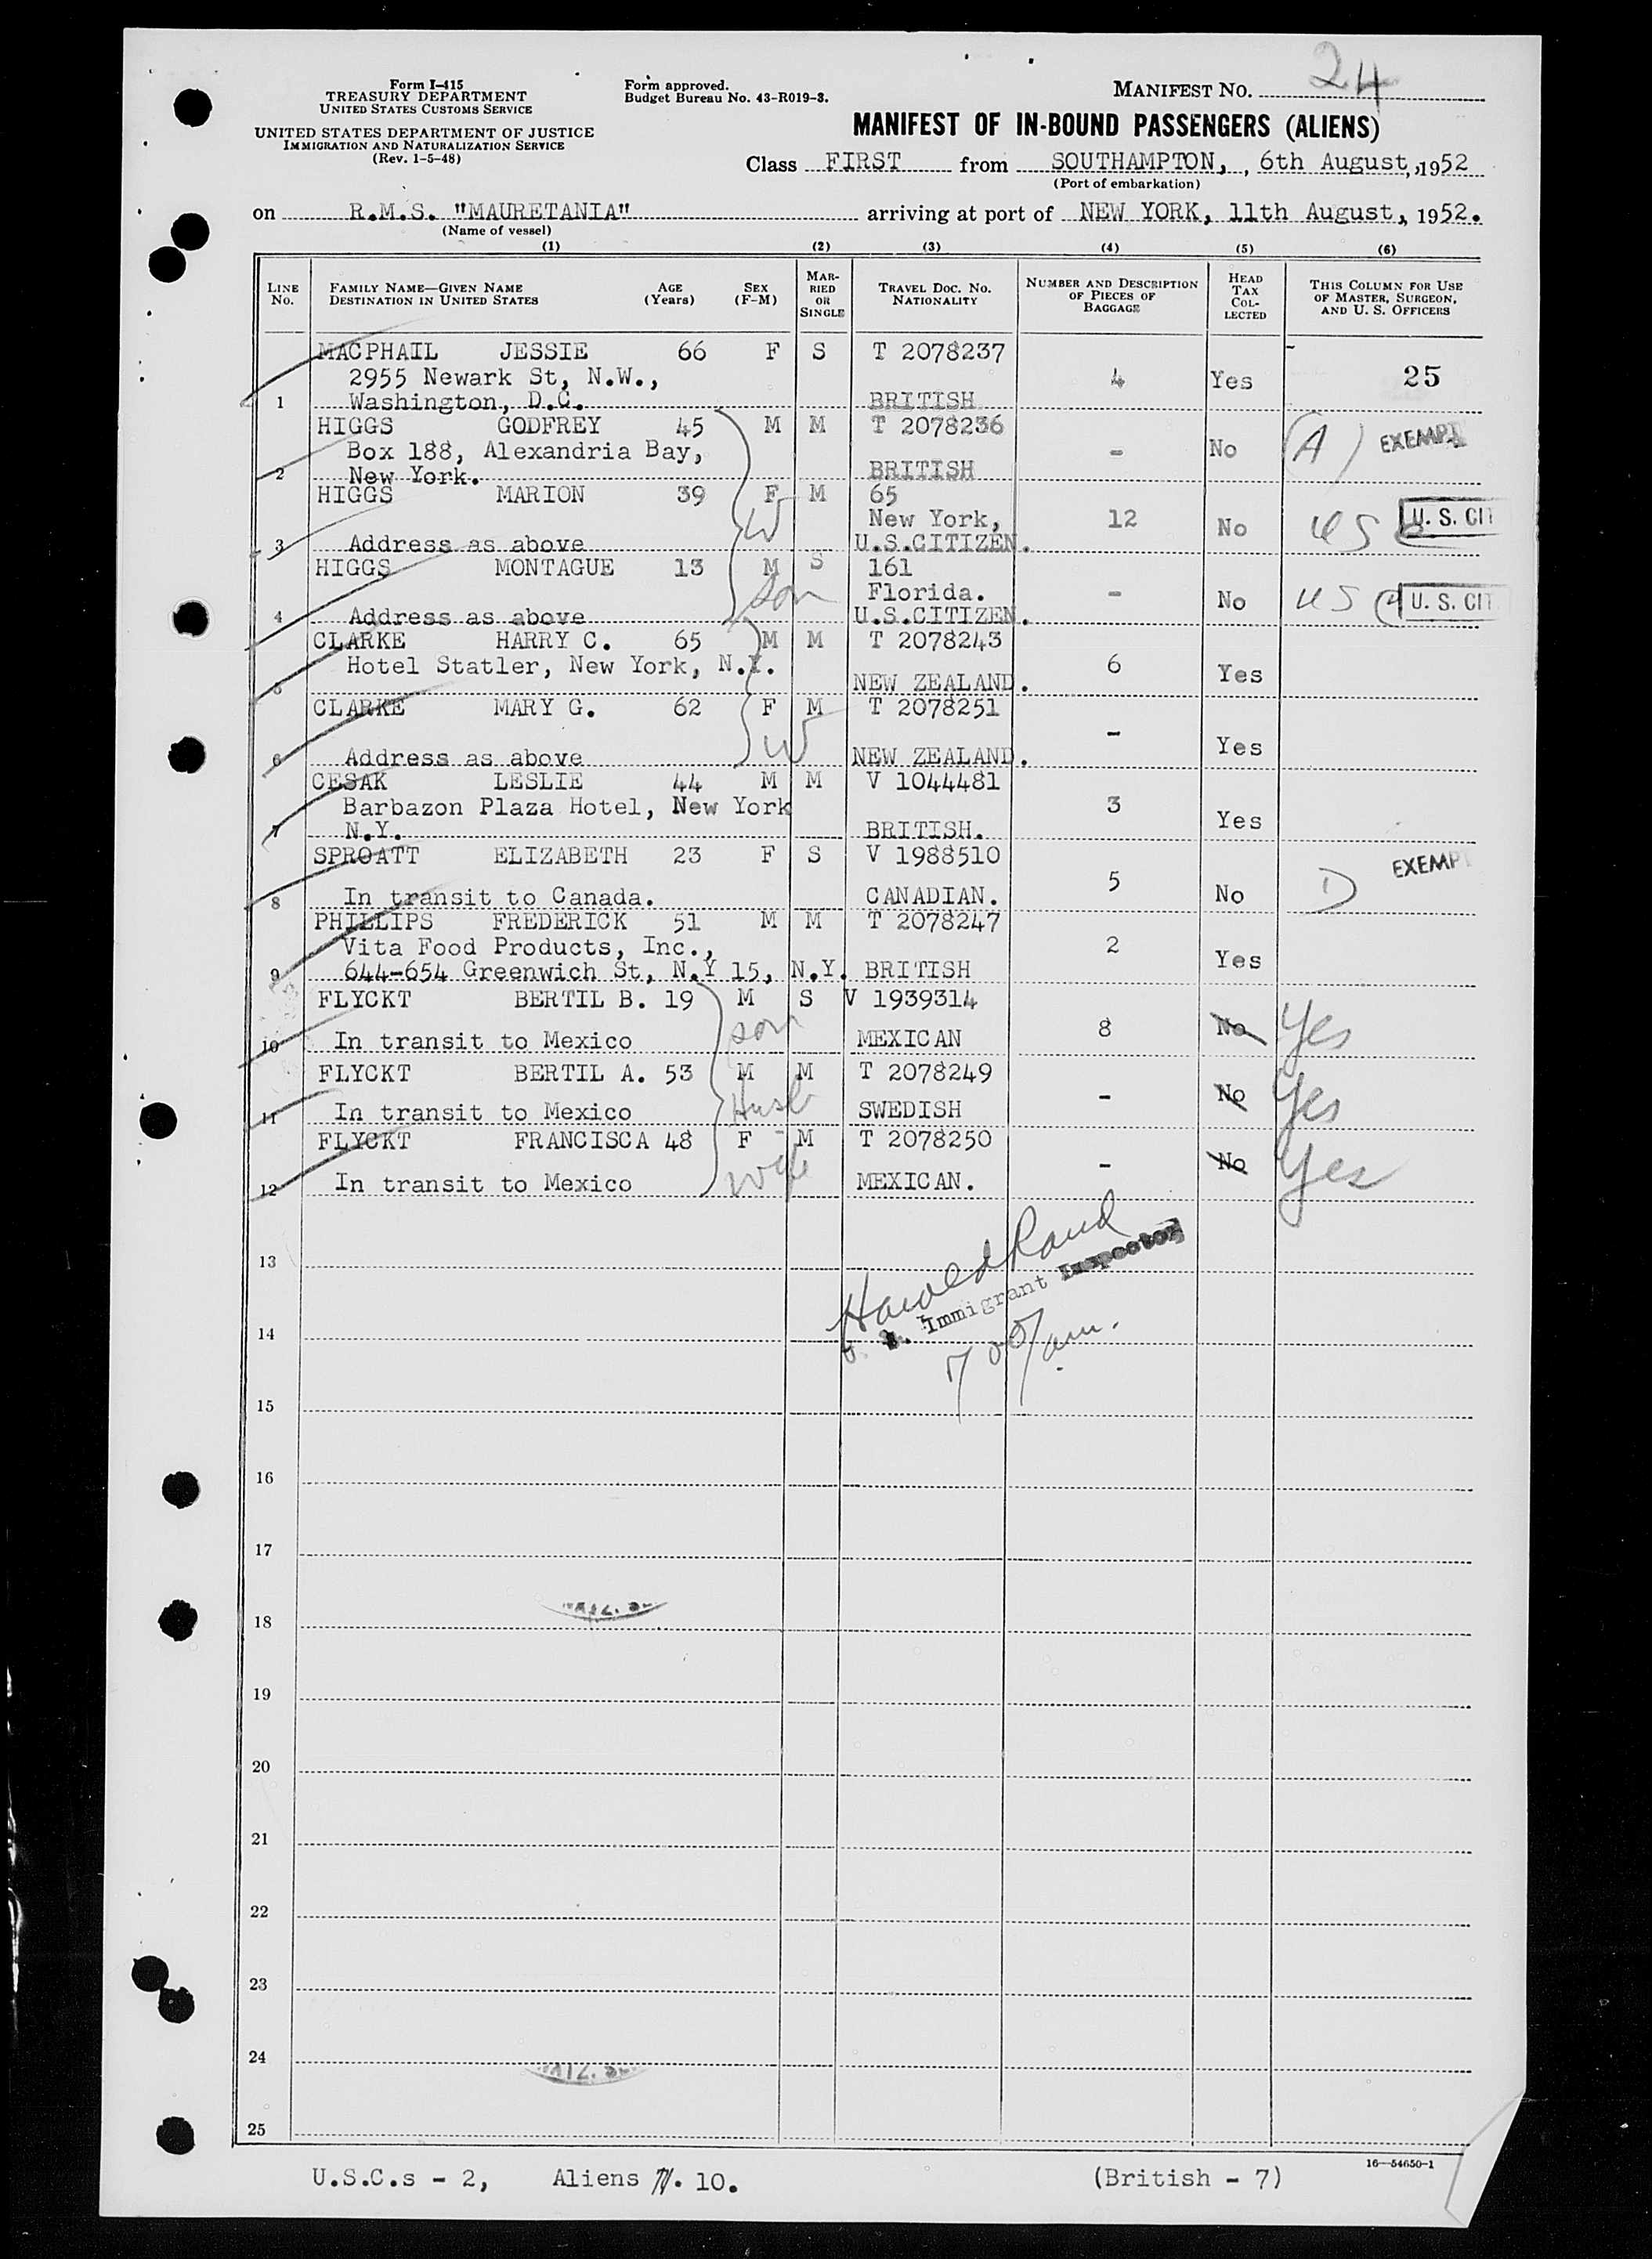 Form I-415
TREASURY DEPARTMENT
UNITED STATES CUSTOMS SERVICE
UNITED STATES DEPARTMENT OF JUSTICE
IMMIGRATION AND NATURALIZATION SERVICE
(Rev. 1-5-48)
Form approved.
Budget Bureau No. 43-R019-3.
MANIFEST NO. 24
MANIFEST OF IN-BOUND PASSENGERS (ALIENS)
Class FIRST from SOUTHAMPTON, , 6th August, , 1952
(Port of embarkation)
on R.M.S. "MAURETANIA" arriving at port of NEW YORK, 11th August, 1952.
(Name of vessel)
(1) (2) (3) (4) (5) (6)
LINE NO. FAMILY NAME—GIVEN NAME DESTINATION IN UNITED STATES AGE (Years) SEX (F-M) MARRIED OR SINGLE TRAVEL DOC. NO. NATIONALITY NUMBER AND DESCRIPTION OF PIECES OF BAGGAGE HEAD TAX COLLECTED THIS COLUMN FOR USE OF MASTER, SURGEON, AND U. S. OFFICERS
MACPHAIL JESSIE 66 F S T 2078237
2955 Newark St, N.W., 4 Yes 25
1 Washington, D.C. BRITISH
HIGGS GODFREY 45 M M T 2078236
Box 188, Alexandria Bay, - No (A) EXEMPT
2 New York. BRITISH
HIGGS MARION 39 F M 65
W New York, 12 No U.S. CIT
3 Address as above U.S.CITIZEN.
HIGGS MONTAGUE 13 M S 161
son Florida. - No US U. S. CIT
4 Address as above U.S.CITIZEN.
CLARKE HARRY C. 65 M M T 2078243
Hotel Statler, New York, N.Y. 6 Yes
5 NEW ZEALAND.
CLARKE MARY G. 62 F M T 2078251
W - Yes
6 Address as above NEW ZEALAND.
CESAK LESLIE 44 M M V 1044481
Barbazon Plaza Hotel, New York 3 Yes
7 N.Y. BRITISH.
SPROATT ELIZABETH 23 F S V 1988510
5 No D EXEMPT
8 In transit to Canada. CANADIAN.
PHILLIPS FREDERICK 51 M M T 2078247
Vita Food Products, Inc., 2 Yes
9 644-654 Greenwich St, N.Y 15, N.Y. BRITISH
FLYCKT BERTIL B. 19 M S V 1939314
son 8 No Yes
10 In transit to Mexico MEXICAN
FLYCKT BERTIL A. 53 M M T 2078249
Husb - No Yes
11 In transit to Mexico SWEDISH
FLYCKT FRANCISCA 48 F M T 2078250
wife - No Yes
12 In transit to Mexico MEXICAN.
Harold Rand
13
Immigrant Inspector
14
am.
15
16
17
18
19
20
21
22
23
24
25
16—54650-1
U.S.C.s - 2, Aliens 10. (British - 7)